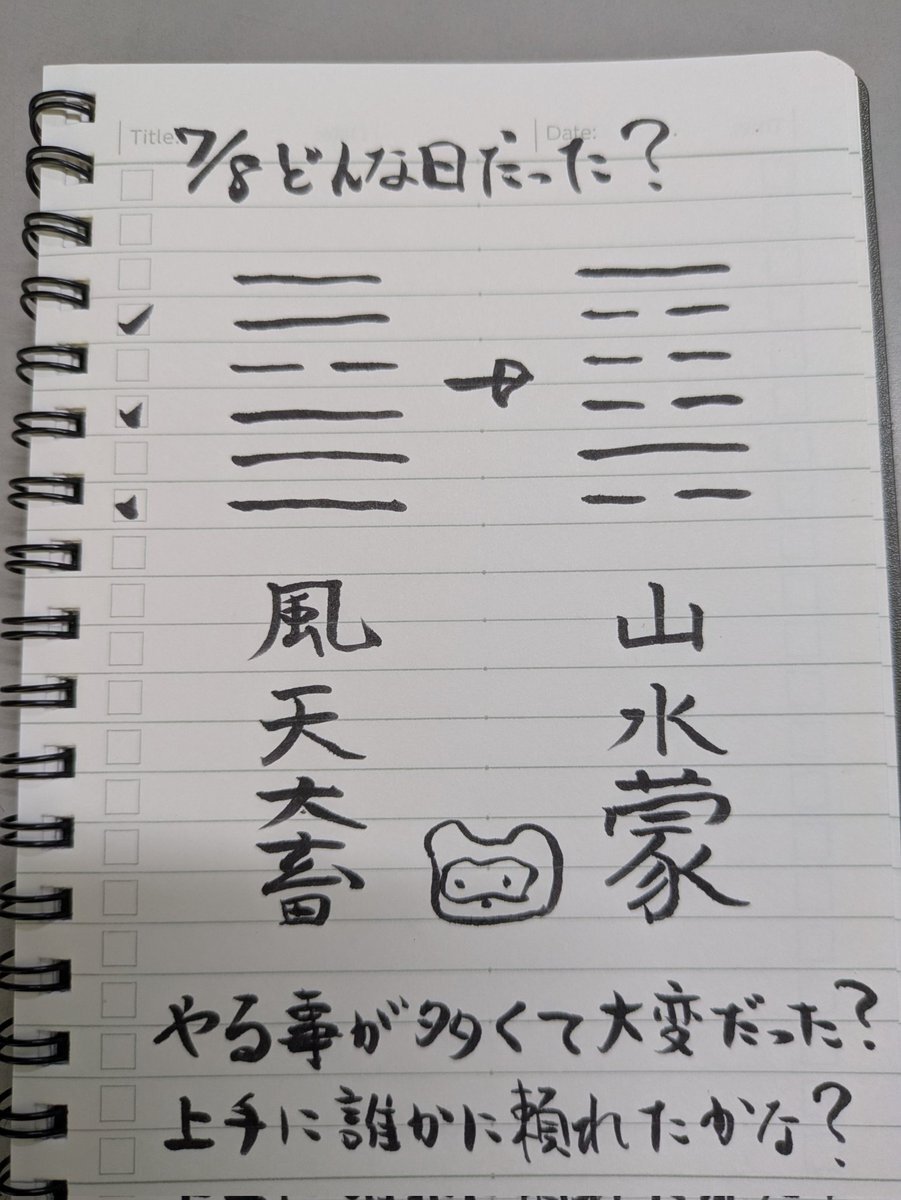 Title:
Date:
7/8どんな日だった?
風天大畜
山水蒙
やる事が多くて大変だった?
上手に誰かに頼れたかな?